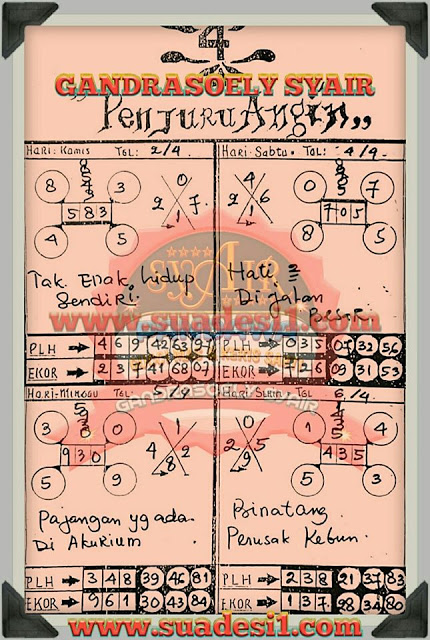 4
GANDRASOELY SYAIR
"Penjuru Angin,,
Hari: Kamis Tgl: 2/4.
8 3
5 8 3
4 5
0
2 7
1
Tak. Enak hidup
Sendiri.
PLH 4 6 9 42 63 97
EKOR 2 3 7 41 68 07
Hari: Sabtu. Tgl: 4/9.
0 7
7 0 5
8 5
4
2 6
1
Hati =
Di jalan
Besar.
www.suadesi1.com
PLH 0 3 5 07 32 56
EKOR 7 2 6 09 31 53
Hari: Minggu 5/9
3 0
9 3 0
5 9
1
4 2
8
Pajangan yg ada
Di Akurium
PLH 3 4 8 39 46 81
EKOR 9 6 1 30 43 84
Hari: Senin 6/4
1 4
4 3 5
5 3
0
2 5
9
Binatang
Perusak Kebun.
PLH 2 3 8 21 37 83
EKOR 1 3 7 28 34 80
GANDRASOELY SYAIR
www.suadesi1.com